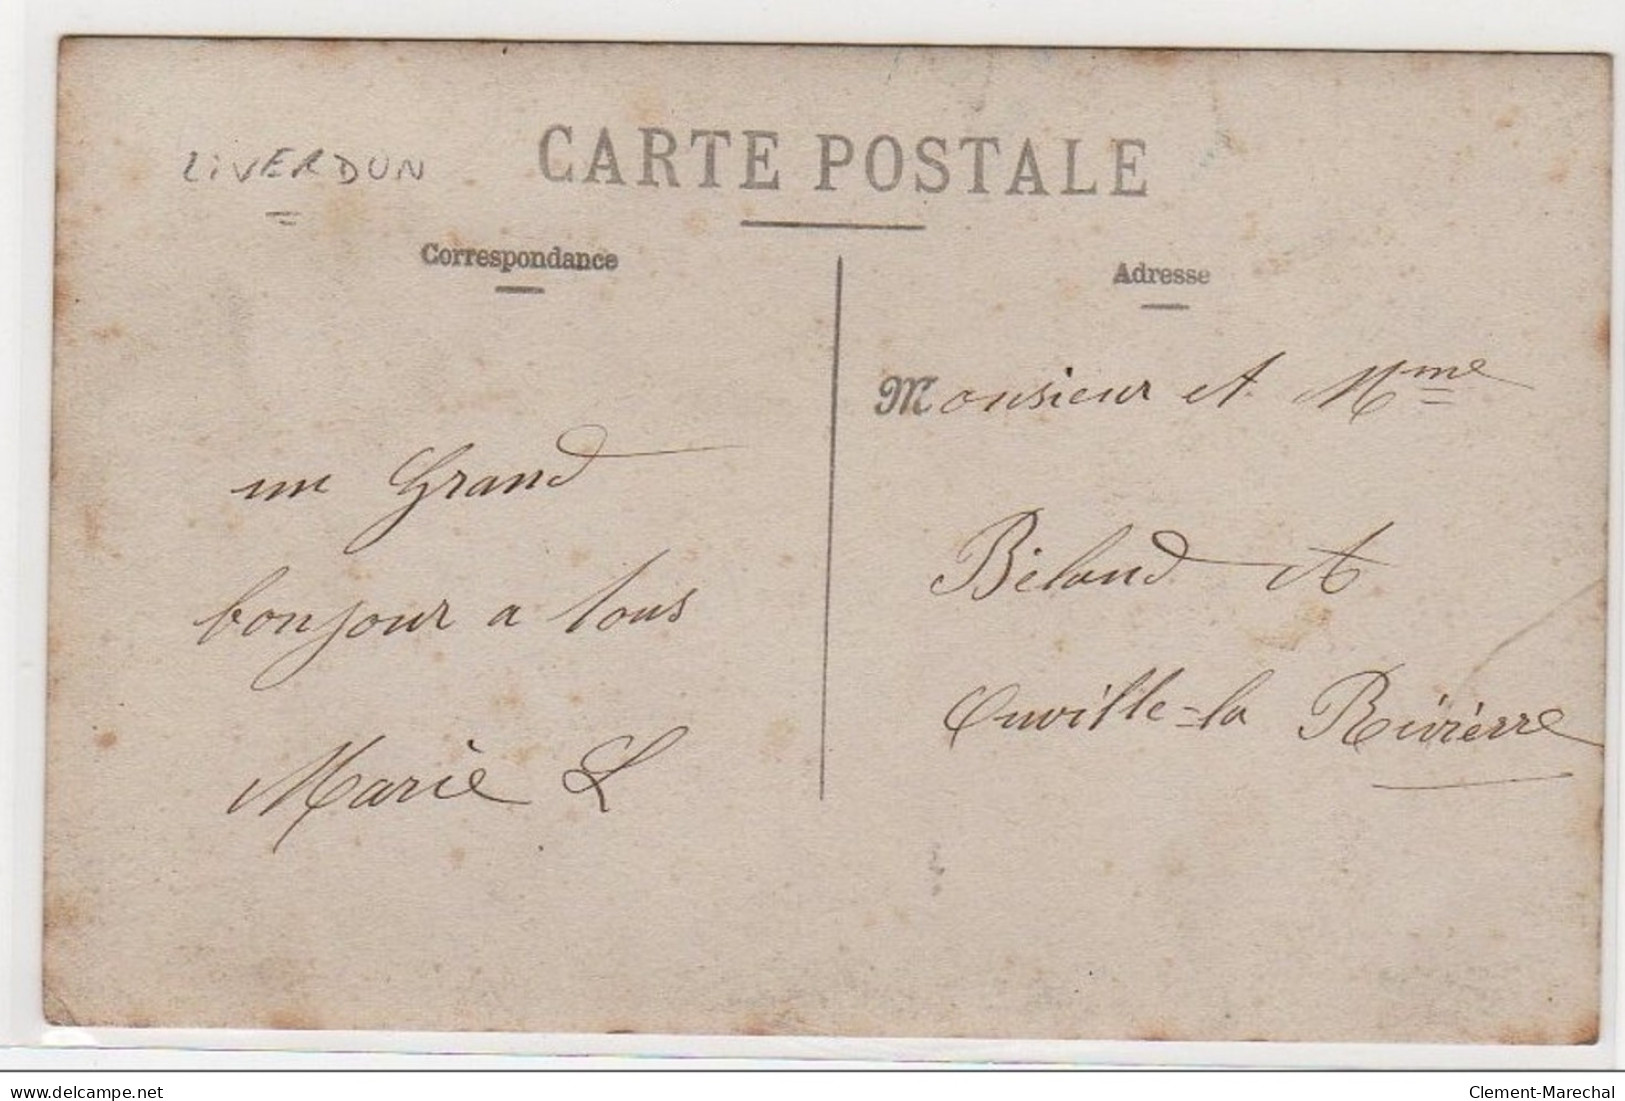 LIVERDUN
CARTE POSTALE
Correspondance
un Grand
bonjour a tous
Marie L
Adresse
Monsieur et Mme
Béland A
Ouville-la Rivièrre
delcampe.net
Clement-Marechal